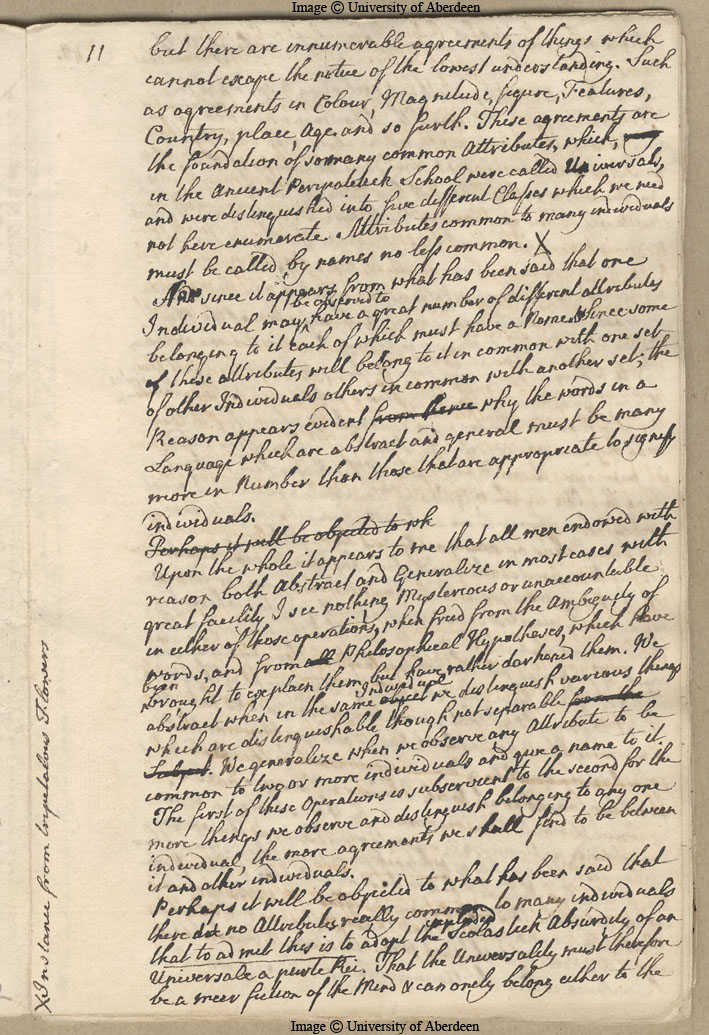 Image © University of Aberdeen
11
but there are innumerable agreements of things which
cannot escape the notice of the lowest understanding. Such
as agreements in Colour, Magnitude, figure, Features,
Country, place, Age and so furth. These agreements are
the foundation of so many common Attributes, which,
in the Ancient Peripatetick School were called Universals,
and were distinguished into five different Classes which we need
not here enumerate. Attributes common to many individuals
must be called by names no less common. X
And since it appears from what has been said that one
be observed to
Individual may have a great number of different attributes
belonging to it each of which must have a Name & since some
of these attributes will belong to it in common with one set
of other Individuals others in common with another set; the
Reason appears evident from hence why the words in a
Language which are abstract and general must be many
more in Number than those that are appropriate to signify
individuals.
Perhaps it will be objected to wh
Upon the whole it appears to me that all men endowed with
reason both Abstract and Generalize in most cases with
great facility. I see nothing Mysterious or unaccountable
in either of those operations, when freed from the Ambiguity of
words, and from all Philosophical Hypotheses, which have
been
brought to explain them, but have rather darkened them. We
Individual
abstract when in the same object we distinguish various things
which are distinguishable though not separable from the
Subject. We generalize when we observe any Attribute to be
common to two or more individuals and give a name to it.
The first of these Operations is subservient to the second for the
more things we observe and distinguish belonging to any one
individual, the more agreements we shall find to be between
it and other individuals.
Perhaps it will be objected to what has been said that
there are no Attributes really common to many individuals
exploded
that to admit this is to adopt the Scolastick Absurdity of an
Universale a parte Rei. That the Universality must therefore
be a meer fiction of the Mind & can onely belong either to the
X Instance from tripetalous Flowers
Image © University of Aberdeen